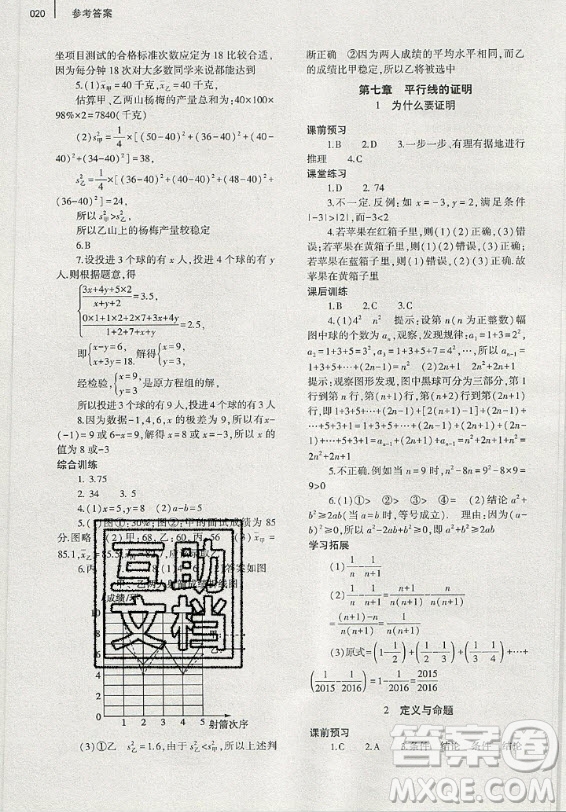 020 参考答案
坐项目测试的合格标准次数应定为 18 次比较合适,
因为每分钟 18 次对大多数同学来说都能达到
5.(1)x̄甲=40 千克,x̄乙=40 千克,
估算甲、乙两山杨梅的产量总和为:40×100×
98%×2=7840(千克)
(2)s²甲=1/4×[(50-40)²+(36-40)²+(40-
40)²+(34-40)²]=38,
s²乙=1/4×[(36-40)²+(40-40)²+(48-40)²+
(36-40)²]=24,
所以 s²甲>s²乙.
所以乙山上的杨梅产量较稳定
6.B
7.设投进 3 个球的有 x 人,投进 4 个球的有 y
人,则根据题意,得
{(3x+4y+5×2)/(x+y+2)=3.5,
(0×1+1×2+2×7+3x+4y)/(1+2+7+x+y)=2.5,
即{x-y=6, x+3y=18. 解得{x=9, y=3.
经检验,{x=9, y=3是原方程组的解.
所以投进 3 个球的有 9 人,投进 4 个球的有 3 人
8.因为数据-1,0,2,4,x 的极差为 9,所以 x-
(-1)=9 或 6-x=9,解得 x=8 或 x=-3.所以 x 的
值为 8 或-3
综合训练
1. 3.75
4.(1)x=5,y=8 (2)a-b=5
5.(1)图①:30%;图②:甲的面试成绩为 85
分.图略
85.1,
(3)①乙 s²乙=1.6,由于 s²乙<s²甲,所以上述判
成绩/环
10
8
6
4
2
0
1 2 3 4 5 射箭次序
断正确 ②因为两人成绩的平均水平相同,而乙
的成绩比甲稳定,所以乙将被选中
第七章 平行线的证明
1 为什么要证明
课前预习
1.B 2.D 3.一步一步、有理有据地进行
推理 4.C
课堂练习
1.D 2. 74
3.不一定.反例:如 x=-3,y=2,满足条件
|-3|>|2|,而-3<2
4.若苹果在红箱子里,则(1)(2)正确,(3)错
误;若苹果在黄箱子里,则(1)错误,(2)(3)正
确;若苹果在蓝箱子里,则(1)(2)错误,(3)正确.
故苹果在黄箱子里
课后训练
1.B 2.A 3.C
4.(1)4² n² 提示:设第 n(n 为正整数)
幅图中球的个数为 aₙ,观察,发现规律:a₁=1+3=
2²,a₂=1+3+5=3²,a₃=1+3+5+7=4²,…,aₙ₋₁=
1+3+5+…+(2n-1)=n². 所以 aₙ₋₁=
1+3+5+…+(2n-1)=n² (2)2n+1 2n²+2n+1
提示:观察图形发现,图中黑球可分为三部分,第 1
行到第 n 行,第(n+1)行,第(n+2)行到第(2n+1)
行,即1+3+5+…+(2n-1)+[2(n+1)-1]+(2n-
1)+…+5+3+1=aₙ₋₁+(2n+1)+aₙ₋₁=n²+2n+1+
n²=2n²+2n+1
5.不正确.例如当 n=9 时,n²-8n-2=7>0
6.(1)> > > = (2)结论 a²+
b²≥2ab(当 a=b 时,等号成立).理由:因为 a²+
b²-2ab=(a-b)²≥0,所以 a²+b²≥2ab
学习拓展
(1)1/n-1/(n+1) (2)1/n-1/(n+1)=(n+1)/n(n+1)-n/n(n+1)
=(n+1-n)/n(n+1)=1/n(n+1)
(3)原式=(1-1/2)+(1/2-1/3)+(1/3-1/4)+…+
(1/2015-1/2016)=1-1/2016=2015/2016
2 定义与命题
课前预习
1.C 2.A 3.条件 结论 条件 结论
互助
文档
作业帮
MXQE.COM